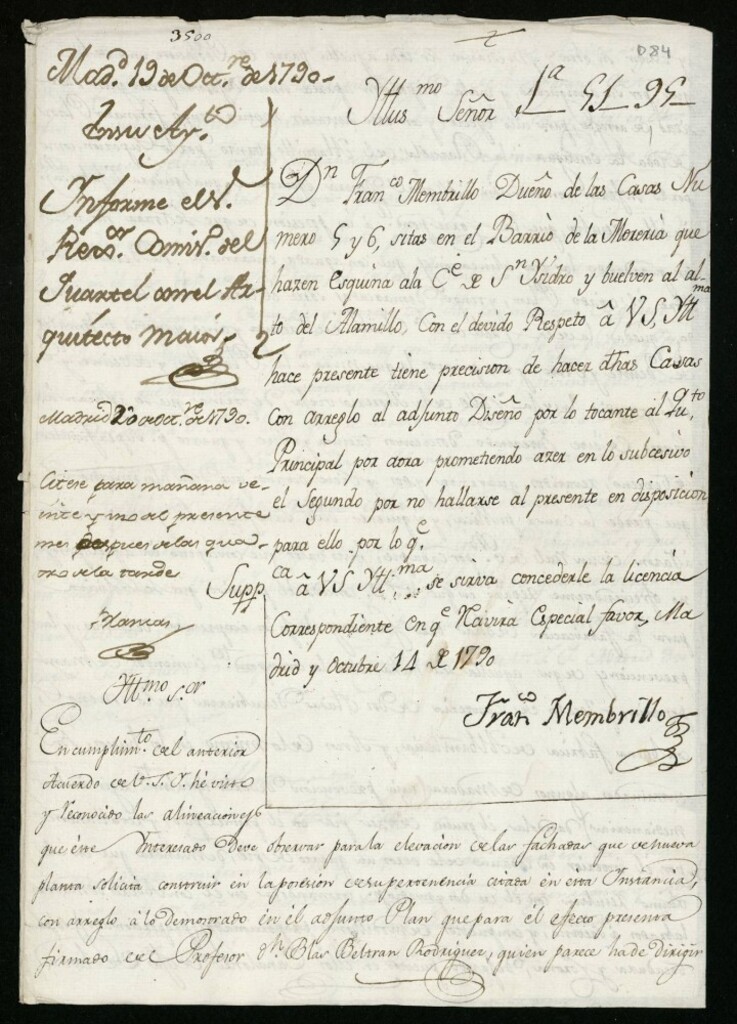 3500
D84
Mad.d 19 de Oct.re de 1790-
En su Ay.to
Informe el S.r
Rex.or Comis.o del
Quartel con el Ar-
quitecto maior
Madrid 20 de Oct.re de 1790.
Citese para mañana ve-
inte y uno del presente
mes despues de las qua-
tro de la tarde
Yttus mo Señor 1a 51 95
Dn Franco Membrillo Dueño de las Casas Nu
mero 5 y 6, sitas en el Barrio de la Moreria que
hazen esquina ala Ce de Sn Ysidro y buelven al al-
to del Alamillo, Con el devido Respeto â VS, Ytt ma
hace presente tiene precision de hacer dhas Casas
Con arreglo al adjunto Diseño por lo tocante al Qto,
Principal por aora prometiendo azer en lo subcesivo
el Segundo por no hallarse al presente en disposicion
para ello . por lo q.e
Suppca â VS Ytt.ma se sirva concederle la licencia
Correspondiente en qe Recivirà Especial favor, Ma
drid y Octubre 14 de 1790
Franco Membrillo
Ytt.mo s.or
En cumplim.to del anterior
Acuerdo de V.S.Y. hè visto
y reconocido las alineaciones
que este Interesado Deve observar para la elevacion de las fachadas que de nueva
planta solicita construir en la posesion de su pertenencia citada en esta Instancia,
con arreglo à lo demostrado en el adjunto Plan que para el efecto presenta
firmado del Profesor dn Blas Beltran Rodriguez, quien parece ha de dirigir